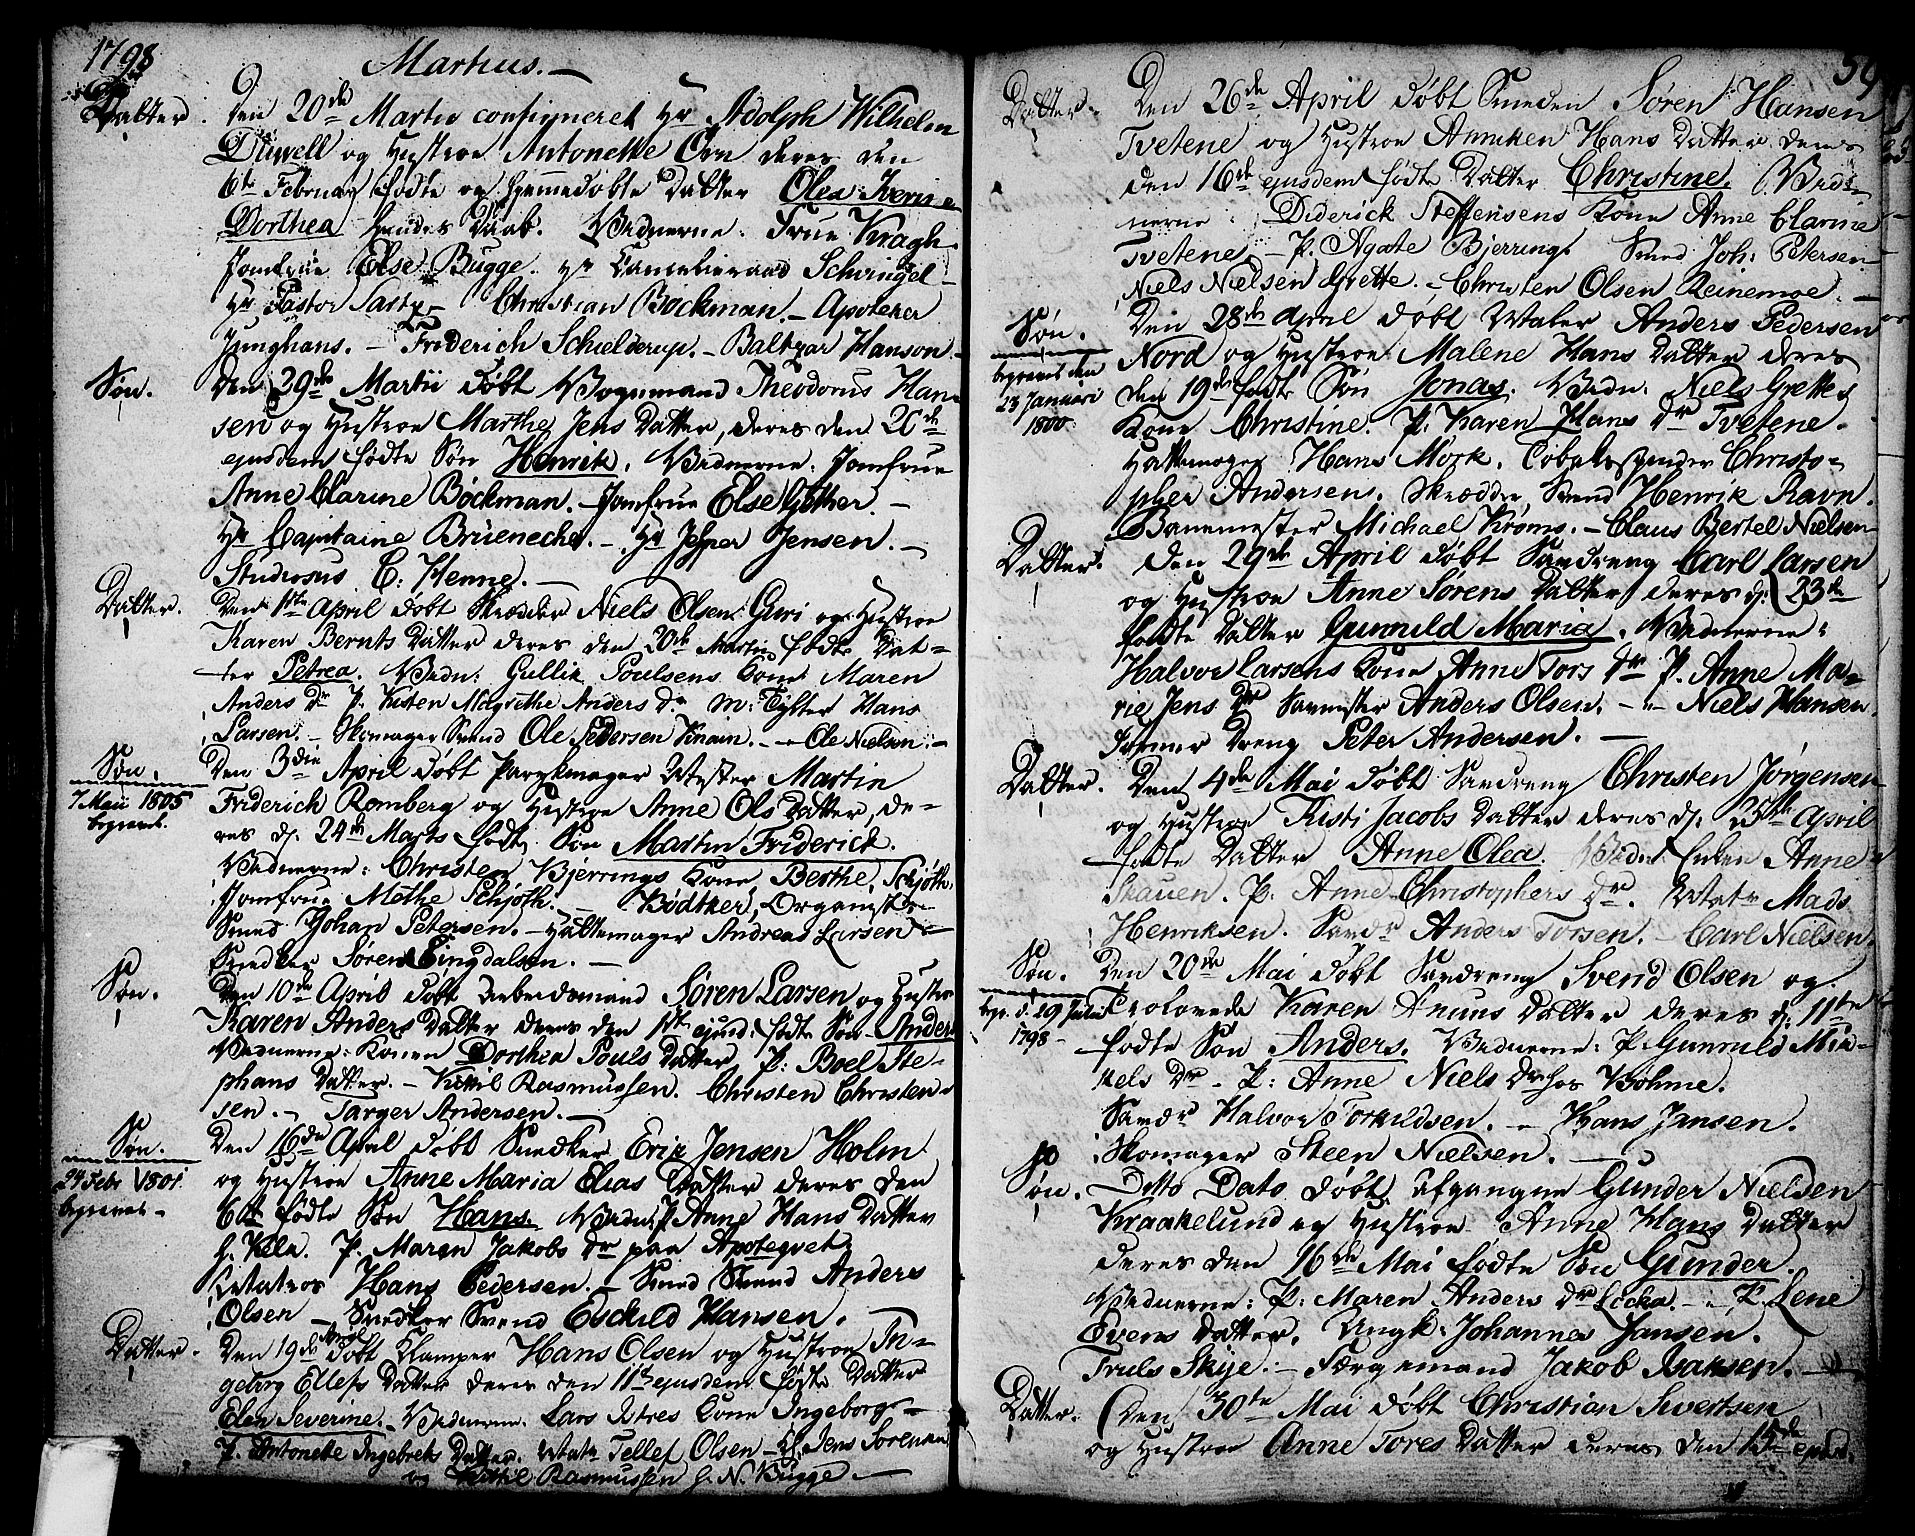 1798
Martius.
Datter.
Den 20de Martii confirmeret Hr Adolph Wilhelm
Düwell og Hustroe Antonette Orn deres den
6te Februar fødte og hjemmedøbte Datter Olea Iverine
Dorthea hendes Daab. Vidnerne: Frue Kragh.
Jomfrue Else Bugge. Hr Cancelieraad Schwingel
Hr Pastor Christian Bøckman. Apoteker
Junghans. Friderich Schielderup. Baltzar Hanson.
Søn.
Den 29de Martii døbt Vognmand Theodorus Han-
sen og Hustroe Marthe Jens Datter, deres den 20de
ejusdem fødte Søn Henrik. Vidnerne: Jomfrue
Anne Clarine Bøckman. Jomfrue Else Gøther.
Hr Capitaine Brüeneche. Hr Jesper Jensen.
Studiosus C: Henne.
Datter.
Den 1te April døbt Skrædder Niels Olsen Guri og Hustroe
Karen Bernts Datter deres den 20de Martii fødte Dat-
ter Petrea. Vidn: Gullik Poulsens Kone Maren
Anders Dr P. Kisten Magrethe Anders Dr Hans
Larsen. Skomager Svend Ole Pedersen Knain. Ole Nielsen.
Søn.
7 Maii 1805
begravet.
Den 3die April døbt Parykmager Mester Martin
Friderich Romberg og Hustroe Anne Ols Datter, de-
res d. 24de Marts fødte Søn Martin Friderick.
Vidnerne: Christen Bjerrings Kone Berthe Schjøth.
Jomfrue Mette Schjøth. Bødtker, Organist
Smed Johan Petersen. Hattemager Andreas Larsen
Snedker Søren Lingdalsen.
Søn.
Den 10de April døbt Arbeidsmand Søren Larsen og Hustroe
Karen Anders Datter deres den 1te ejusd: fødte Søn Anders
Vidnerne: Konen Dorthea Pouls Datter. P: Boel Ste-
phans Datter. Kittil Rasmussen. Christen Christen-
sen. Targer Andersen.
Søn.
24 Febr 1801.
begravet
Den 16de April døbt Snedker Erik Jensen Holm
og Hustroe Anne Maria Elias Datter deres den
6te fødte Søn Hans. Vidn: P. Anne Hans Datter
P. Maren Jakobs Dr paa Apoteqvet
Matros Hans Pedersen. Smed Svend Anders
Olsen Snedker Svend Eschild Hansen.
Datter.
Den 19de April døbt Klamper Hans Olsen og Hustroe In-
geborg Ellefs Datter deres den 11te ejusdem fødte Datter
Elen Severine. Vidnerne. Lars Kone Ingeborg
P. Antonette Ingebrets Datter. Matr Tellef Olsen Jens Sørensen
og Kittil Rasmussen h. N. Bugge.
59
Datter.
Den 26de April døbt Smeden Søren Hansen
Tvetene og Hustroe Anniken Hans Datter deres
den 16de ejusdem fødte Datter Christine. Vid-
nerne: Diderick Steffensens Kone Anne Clarine
Tvetene. P. Agate Bjerring. Smed Joh: Petersen
Niels Nielsen Grette. Christen Olsen Reinemoe.
Søn.
begravet den
23 Januari
1800
Den 28de April døbt Anders Pedersen
Nord og Hustroe Malene Hans Datter deres
den 19de fødte Søn Jonas. Vidn: Niels Grettes
Kone Christine. P. Karen Hans Dr Tvetene.
Hattemager Hans Mork. Tobaksspinder Christo-
pher Andersens. Skrædder Svend Henrik Ravn.
Michael Krøms. Claus Bertel Nielsen
Datter.
Den 29de April døbt Sandreng Carl Larsen
og Hustroe Anne Sørens Datter deres d. 23de
fødte Datter Gunnild Maria. Vidnerne:
Halvor Larsens Kone Anne Tors Dr P. Anne Ma-
rie Jens Dr Anders Olsen. Niels Hansen.
Dreng Peter Andersen.
Datter.
Den 4de Mai døbt Sandreng Christen Jørgensen
og Hustroe Kisti Jacobs Datter deres d: 25de April
fødte Datter Anne Olea. Vidn: Enken Anne
Skauen. P: Anne Christophers Dr. Matr Mads
Henriksen. Sandr Anders Torsen. Carl Nielsen.
Søn.
begr. d. 29 Julii
1798
Den 20de Mai døbt Sandreng Svend Olsen og
Trolovede Karen Knuds Datter deres d. 11te
fødte Søn Anders. Vidnerne: P. Gunnild Mik-
kels Dr P: Anne Niels Dr hos Bøhme.
Sandr Halvor Torkildsen. Hans Jansen.
Skomager Steen Nielsen.
Søn.
Ditto Dato døbt afgangne Gunder Nielsen
Kraakelund og Hustroe Anne Hans Datter
deres den 16de Mai fødte Søn Gunder.
Vidnerne: P: Maren Anders Dr Locka. P. Lene
Evens Datter. Ungk: Johannes Jansen.
Truls Skije. Færgemand Jakob Isaksen.
Datter.
Den 30te Mai døbt Christian Sivertsen
og Hustroe Anne Tores Datter deres den 15de ejusd.